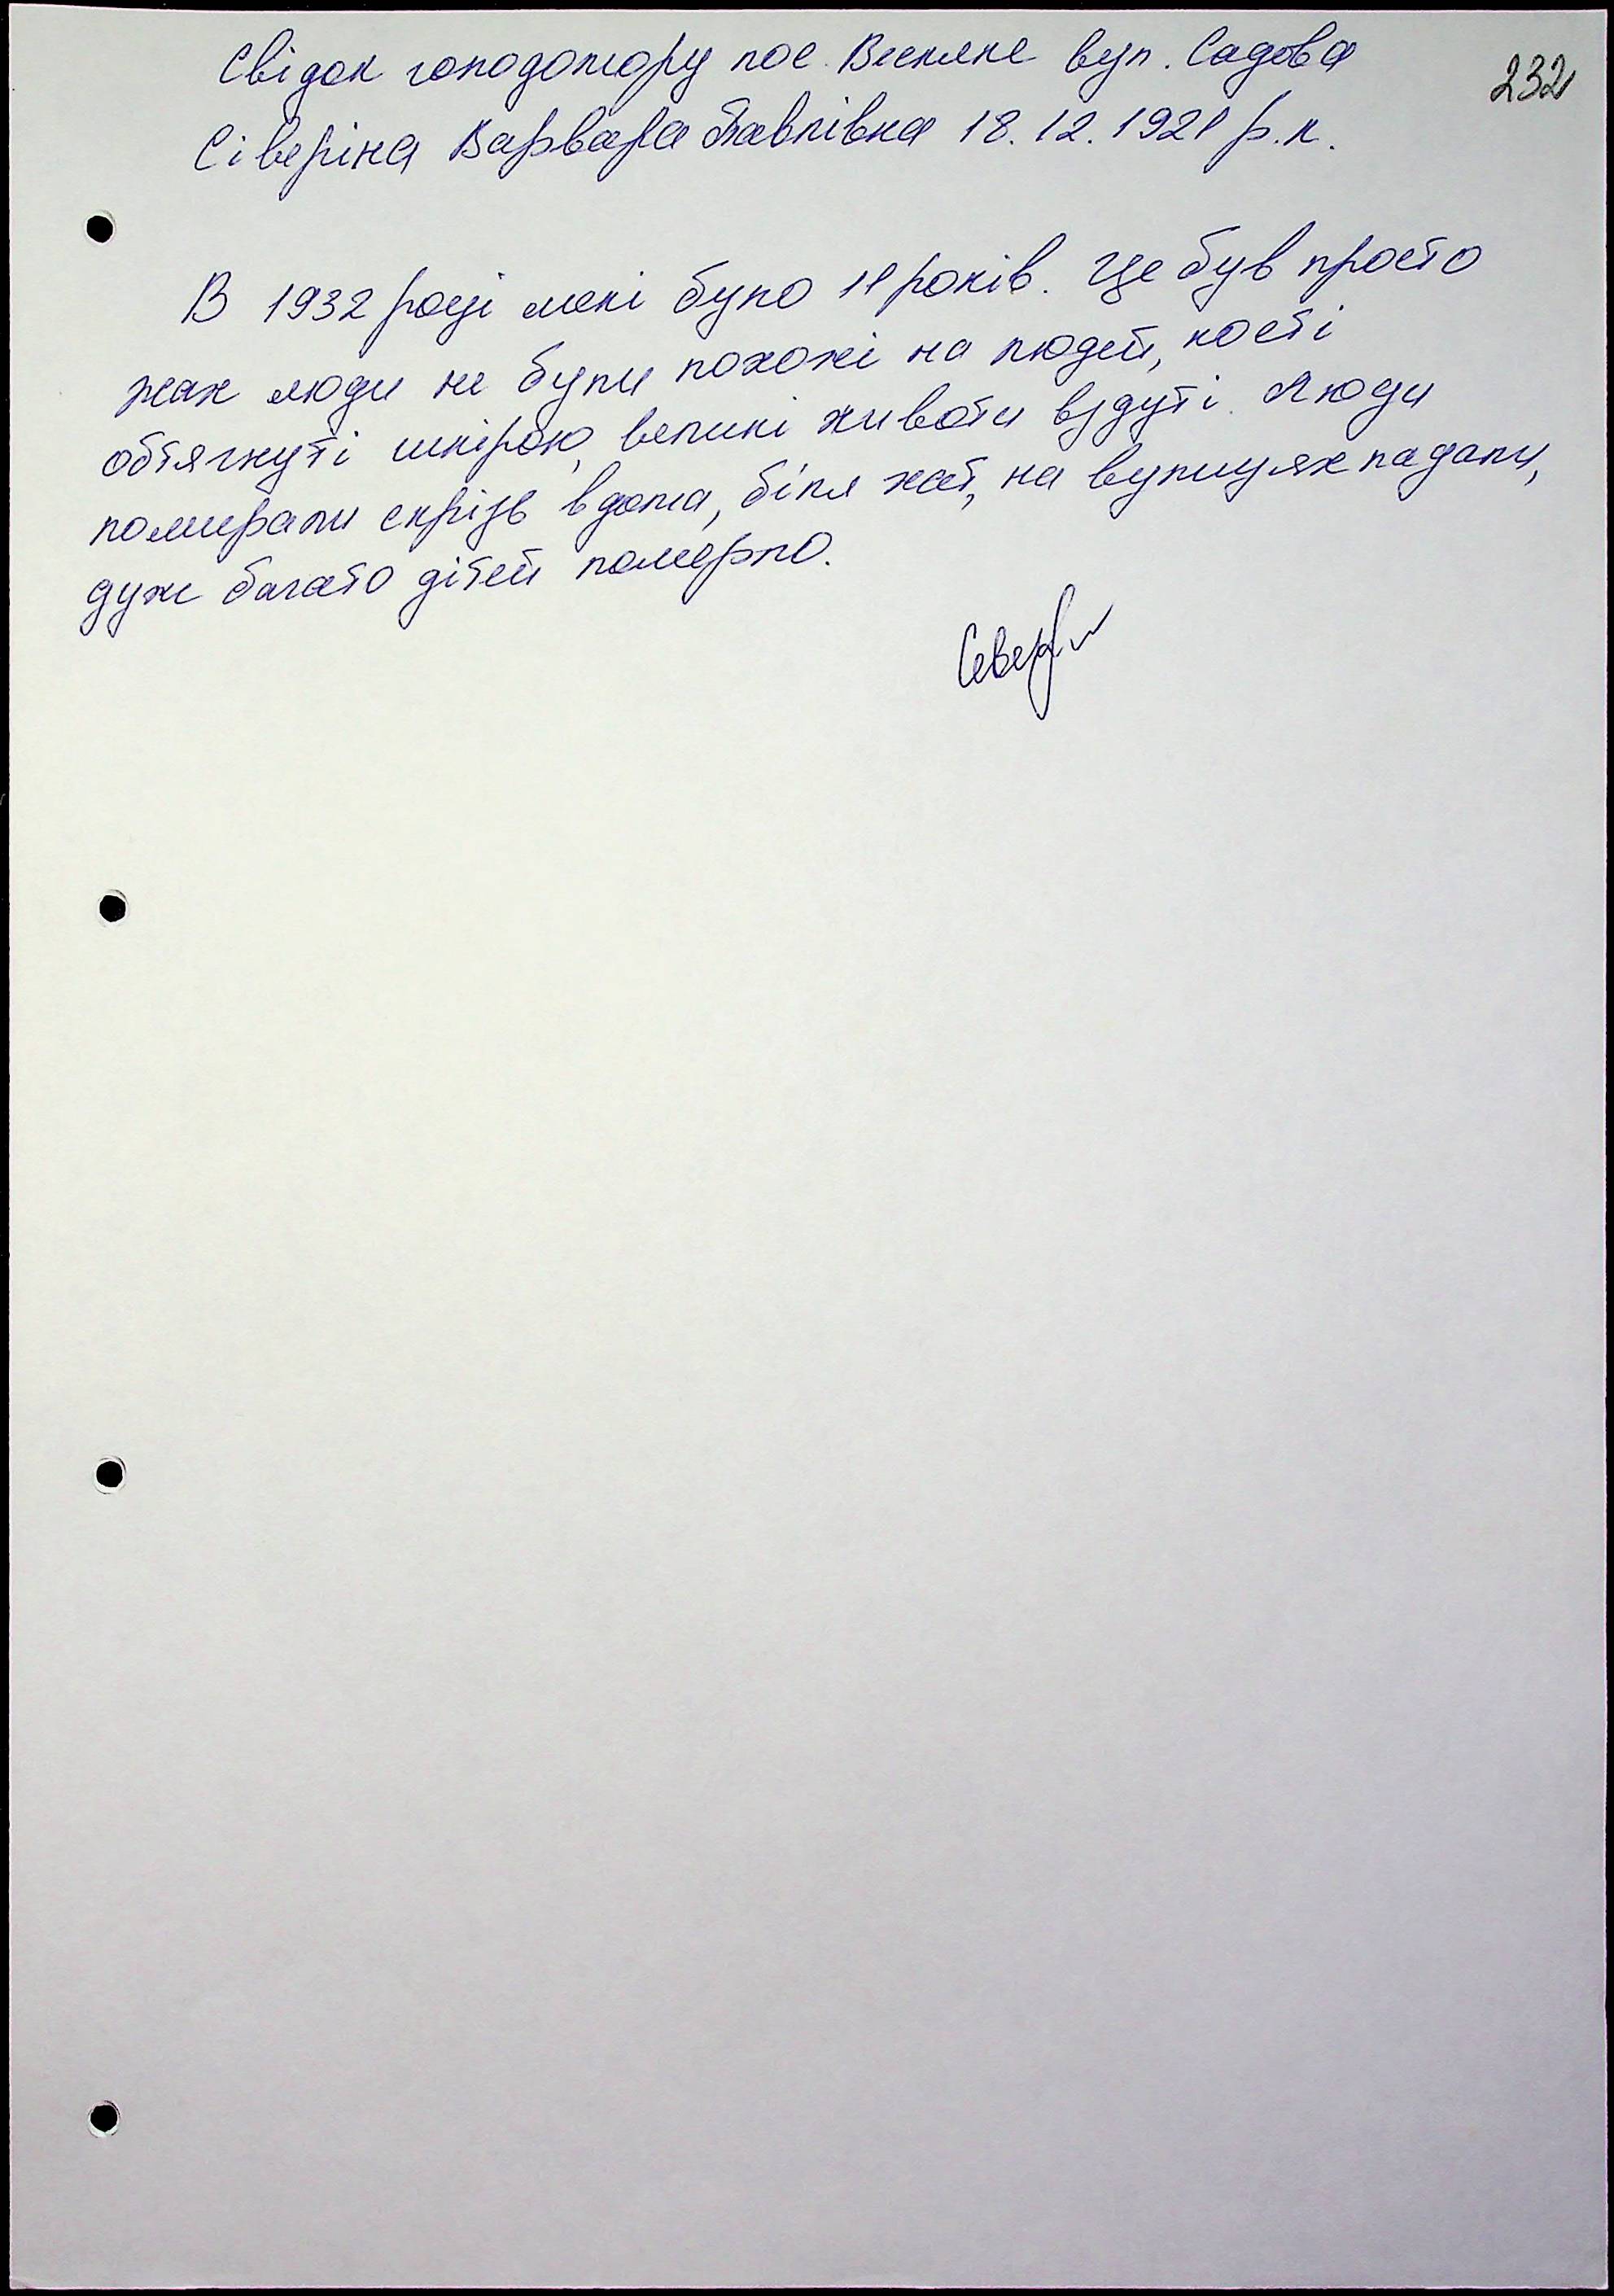 Свідок голодомору пос. Весняне вул. Садова
232
Сіверіна Варвара Павлівна 18.12.1921 р.н.
В 1932 році мені було 11 років. Це був просто
жах люди не були похожі на людей, кості
обтягнуті шкірою, великі животи вздуті. Люди
помирали скрізь вдома, біля хат, на вулицях падали,
дуже багато дітей померло.